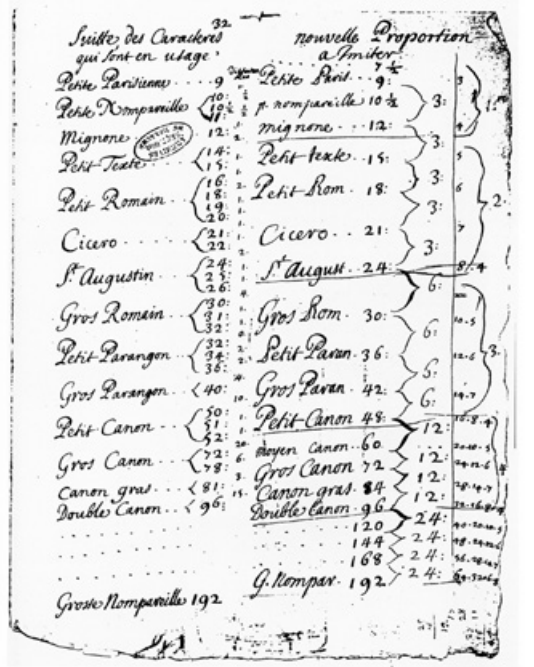 32
Suitte des Caracteres
qui sont en usage.
Petite Parisienne 9
Petite Nompareille 10: 10½ 11:
Mignone 12:
Petit Texte 14: 15:
Petit Romain 16: 18: 19: 20:
Cicero 21: 22:
St. Augustin 24: 25: 26:
Gros Romain 30: 31: 32:
Petit Parangon 32: 34: 36:
Gros Parangon 40:
Petit Canon 50: 51: 52:
Gros Canon 72: 78:
Canon gras 81:
Double Canon 96:
Grosse Nompareille 192
nouvelle Proportion
a Imiter
7½
Petite Paris. 9: 3
p. nompareille 10½ 3: 1.
mignone 12: 4
3:
Petit texte 15: 5
3:
Petit Rom. 18: 6 2.
3:
Cicero 21: 7
3:
St. August. 24: 8. 4
6:
Gros Rom. 30: 10.5
6: 3.
Petit Paran. 36: 12.6
6:
Gros Paran. 42: 14.7
6:
Petit Canon 48: 16.8.4
12:
moyen Canon. 60 20.10.5
12:
Gros Canon 72 24.12.6
12:
Canon gras. 84 28.14.7
12:
Double Canon 96
24:
120 40.20.10.5
24:
144 48.24.12.6
24:
168 56.28.14.7
24:
G. Nompar. 192